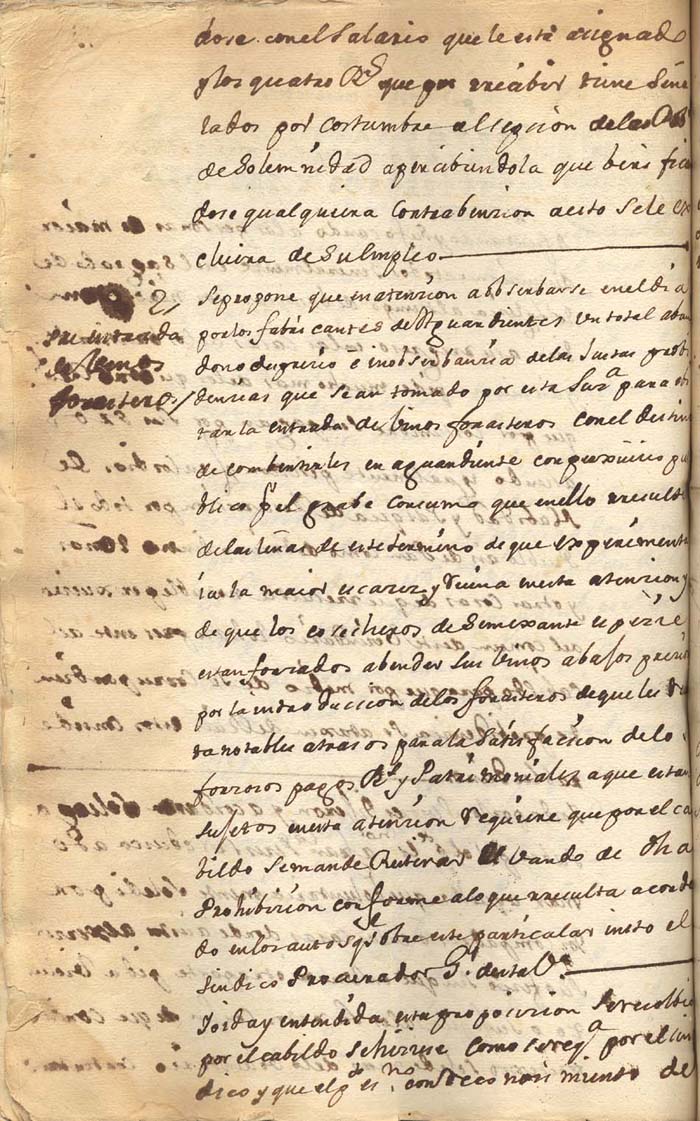 dose con el Salario que le esta asignado
y los quatro R.s que por recibir tiene Seña
lados por costumbre
de Solemnidad apercibiendola que berifican
dose qualquiera Contrabension a esto se le ex
cluira de Su Empleo
2,
Se propone que en atension a obserbarse en el dia
entrada
por los fabricantes de Aguardientes un total aban
de binos
dono desprecio è inobserbansia de las Justas probi
forasteros
densias que se an tomado por esta para ebi
tar la entrada de binos forasteros con el destino
de combertirles en aguardiente con perxuisio pu
blico p.r el grabe consumo que en ello rresulta
de las leñas de este termino de que experimenta
ra la maior escasez y Ruina en esta atension y
de que los cosecheros de Semexante espezie
estan forsados a bender Sus binos a baJos presios
por la introducsion de los forasteros de que les
ta notables atrasos para la Satisfacsion de lo
forsosos pagos R.s y Patrimoniales a que estan
Sujetos en esta atension Requiere que por el ca
bildo Se mande Reiterar el bando de dha
Prohibision conforme a lo que rresulta acorda
do en los autos q.e Sobre este particular insto el
Sindico Procurador G.l de esta V.a
Y oida y entendida esta proposision Se resolbio
por el cabildo Se hisiese como Se req.a por el Sin
dico y que el con reconosimiento de